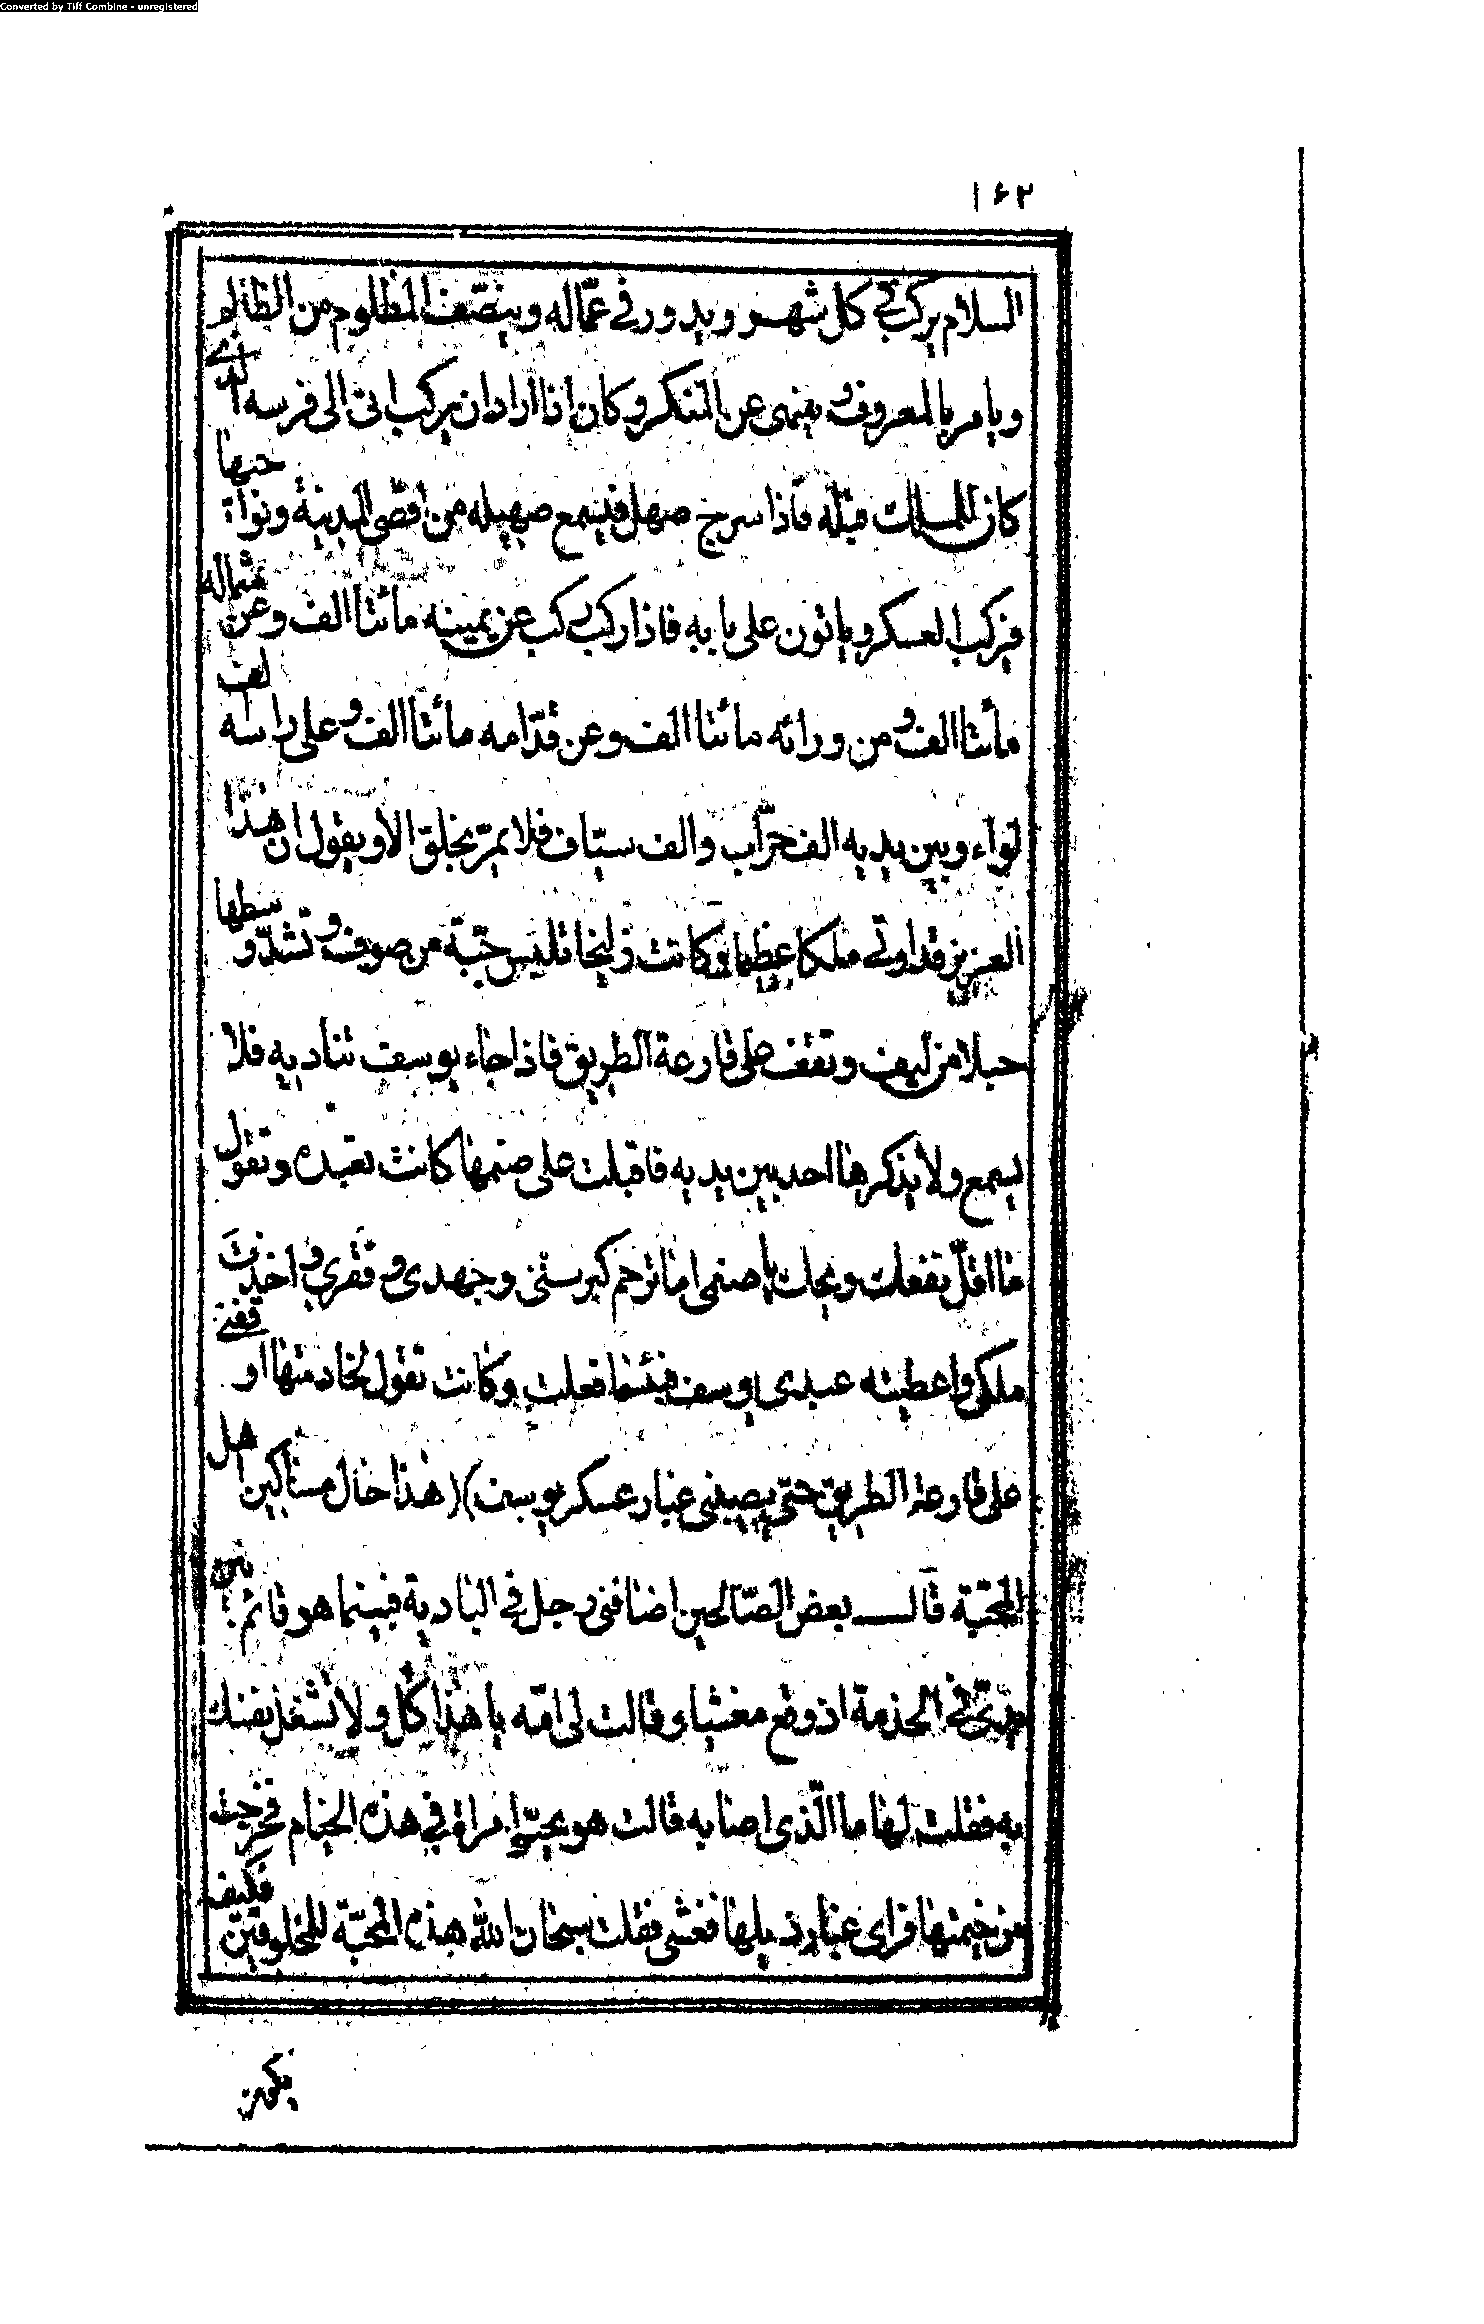 Converted by Tiff Combine - unregistered
۱۶۲
السلام يركب في كل شهر ويدور في عمّاله وينصّف المظلوم من الظالم
ويامر بالمعروف وينهى عن المنكر وكان اذا اراد ان يركب اتى الى فرسه الذي
كان للملك قبله فاذا سرج صهل فيسمع صهيله من اقصى المدينة ونواحيها
فيركب العسكر وياتون على بابه فاذا ركب ركب عن يمينه مائتا الف وعن شماله
مائتا الف ومن ورائه مائتا الف وعن قدّامه مائتا الف وعلى راسه الف
لواء وبين يديه الف حرّاب والف سيّاف فلا يمرّ بخلق الا ويقول ان هذا
العزيز قد اوتي ملكا عظيما وكانت زليخا تلبس جبّة من صوف وتشدّ وسطها
حبلا من ليف وتقف على قارعة الطريق فاذا جاء يوسف تناديه فلا
يسمع ولا يذكرها احد بين يديه فاقبلت على صنمها كانت تعبده وتقول
ما اقلّ نفعك ويحك يا صنمى اما ترحم كبر سنى وجهدى وفقرى واخذت
ملكى واعطيته عبدى يوسف فبئسما فعلت وكانت تقول لخادمتها اوقفني
على قارعة الطريق حتى يصيبنى غبار عسكر يوسف)(هذا حال مساكين اهل
المحبّة قال بعض الصّالحين اضافنى رجل في البادية فبينما هو قائم بين
يدىّ في الخدمة اذ وقع مغشيا وقالت لى امّه يا هذا كل ولا تشغل نفسك
به فقلت لها ما الّذى اصابه قالت هو يحبّ امراة في هذه الخيام فخرجت
من خيمتها فراى غبار ذيلها فغشى فقلت سبحان الله هذه المحبّة للمخلوقين فكيف
يكون